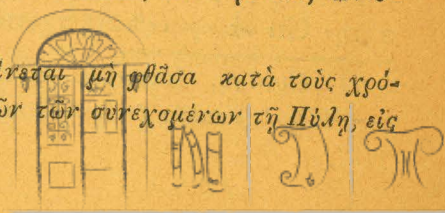 νεται μὴ φθᾶσα κατὰ τοὺς χρό-
ῶν τῶν συνεχομένων τῇ Πύλῃ, εἰς